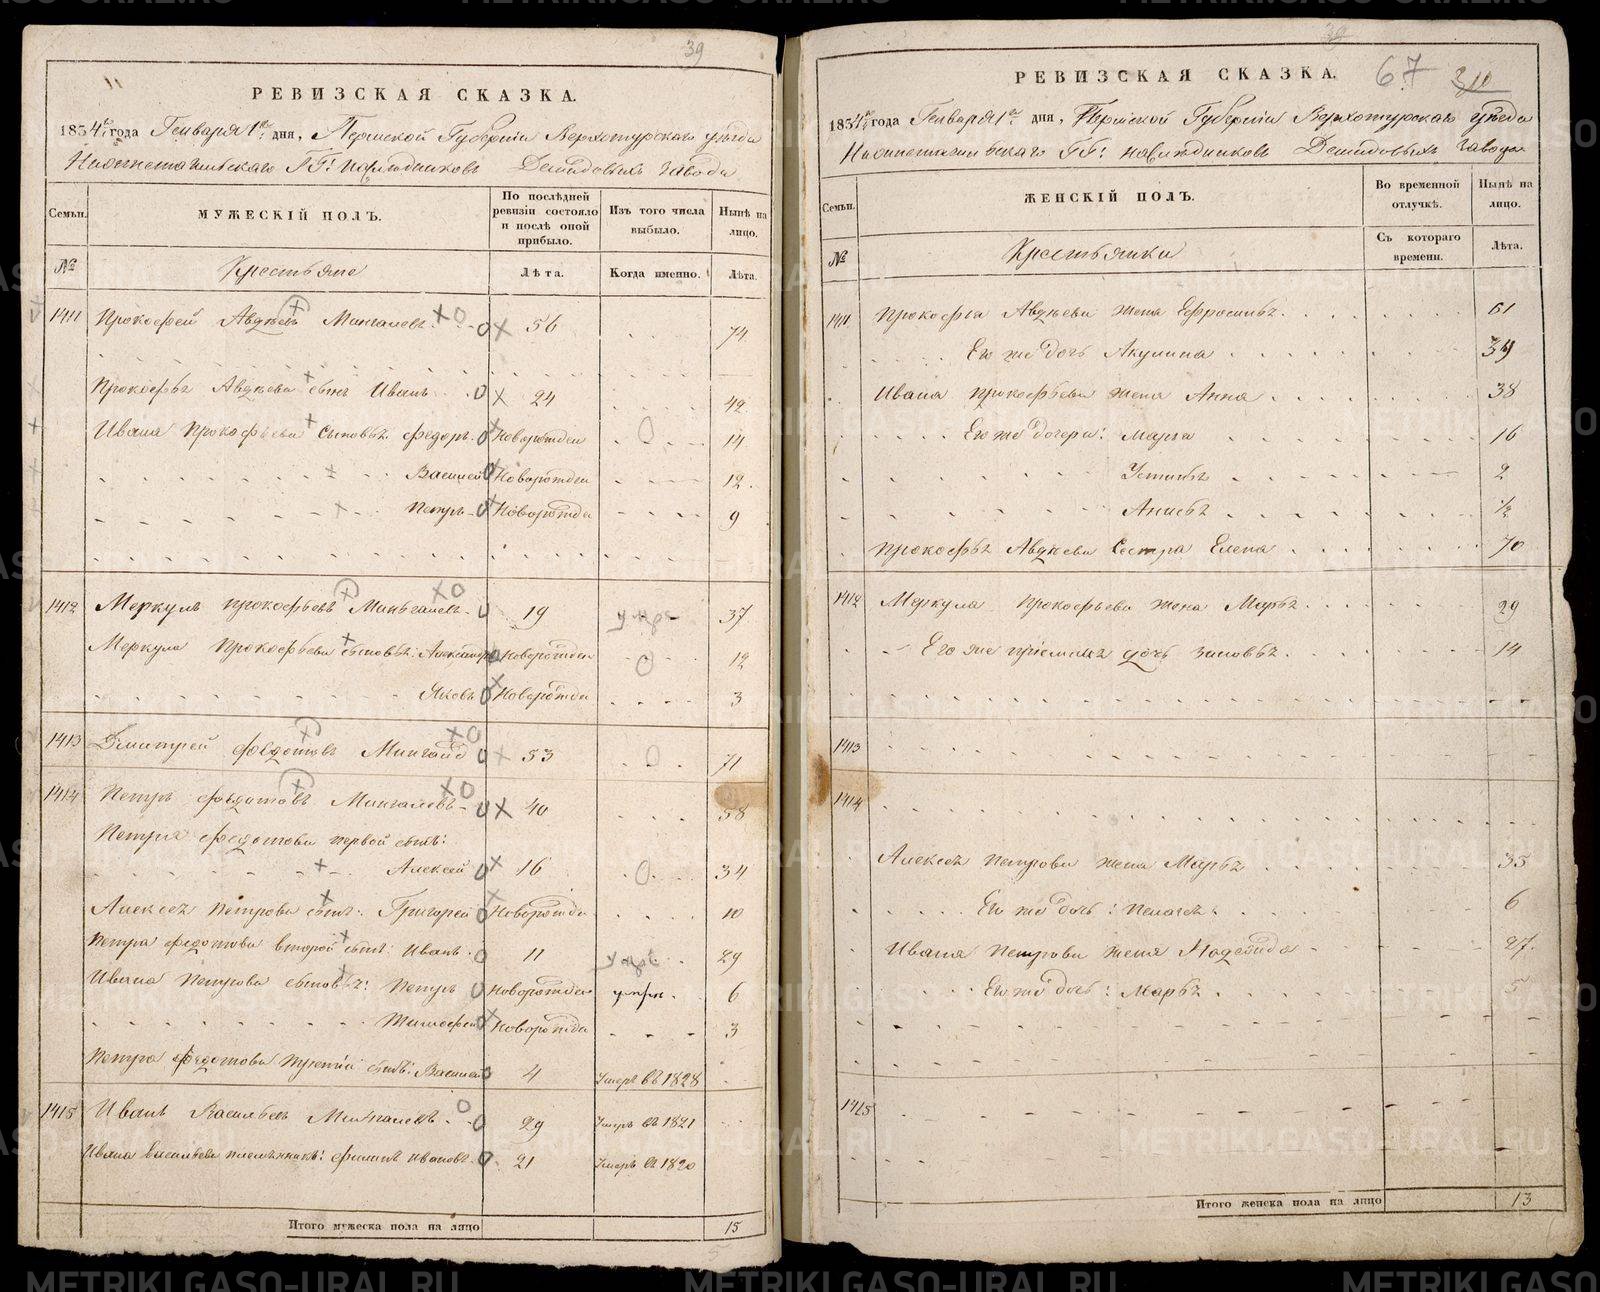 39
РЕВИЗСКАЯ СКАЗКА.
1834 года Генваря 1 дня, Пермской Губернiи Верхотурскаго уѣзда
Нижнетагильскаго ГГ: наслѣдниковъ Демидовыхъ завода
Семьи.
МУЖЕСКIЙ ПОЛЪ.
По послѣдней ревизiи состояло и послѣ оной прибыло.
Изъ того числа выбыло.
Нынѣ на лицо.
№
Крестьяне
Лѣта.
Когда именно.
Лѣта.
1411 Прокофей Авдѣевъ Мингалевъ 56 74
Прокофья Авдѣева сынъ Иванъ 24 42
Ивана Прокофьева сыновья Федоръ Новорожден 14
Василей Новорожден 12
Петръ Новорожден 9
1412 Меркулъ Прокофьевъ Мингалевъ 19 умре 37
Меркула Прокофьева сыновья: Александръ Новорожден 12
Яковъ Новорожден 3
1413 Дмитрей Федотовъ Мингалевъ 53 71
1414 Петръ Федотовъ Мингалевъ 40 58
Петра Федотова первой сынъ:
Алексей 16 34
Алексея Петрова сынъ: Григорей Новорожден 10
Петра Федотова второй сынъ: Иванъ 11 умре 29
Ивана Петрова сыновья: Петръ Новорожден умре 6
Тимофей Новорожден 3
Петра Федотова третiй сынъ: Василей 4 Умеръ въ 1828
1415 Иванъ Васильевъ Мингалевъ 29 Умеръ въ 1821
Ивана Васильева племянникъ: Филипъ Ивановъ 21 Умеръ въ 1820
Итого мужеска пола на лицо 15
39
РЕВИЗСКАЯ СКАЗКА.
67 310
1834 года Генваря 1 дня, Пермской Губернiи Верхотурскаго уѣзда
Нижнетагильскаго ГГ: наслѣдниковъ Демидовыхъ завода
Семьи.
ЖЕНСКIЙ ПОЛЪ.
Во временной отлучкѣ.
Нынѣ на лицо.
№
Крестьянки
Съ котораго времени.
Лѣта.
1411 Прокофья Авдѣева жена Ефросинья 61
Его же дочь Акулина 34
Ивана Прокофьева жена Анна 38
Его же дочери: Марья 16
Устинья 2
Анисья 1/2
Прокофья Авдѣева Сестра Елена 70
1412 Меркула Прокофьева жена Марья 29
Его же прiемная дочь Зиновья 14
1413
1414
Алексея Петрова жена Марья 35
Его же дочь: Пелагея 6
Ивана Петрова жена Надежда 27
Его же дочь: Марья 5
1415
Итого женска пола на лицо 13
METRIKI.GASO-URAL.RU